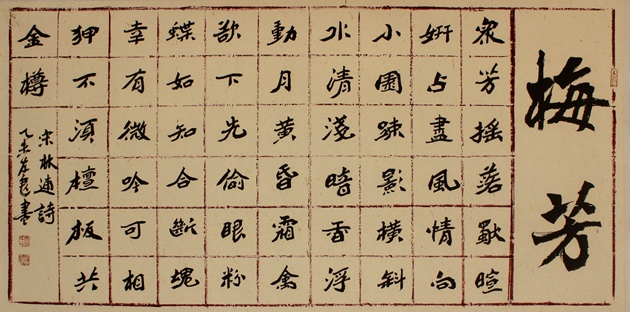 梅芳
衆芳摇落獨暄
妍占盡風情向
小園疎影横斜
水清淺暗香浮
動月黄昏霜禽
欲下先偷眼粉
蝶如知合斷魂
幸有微吟可相
狎不須檀板共
金樽
宋林逋詩
乙未書